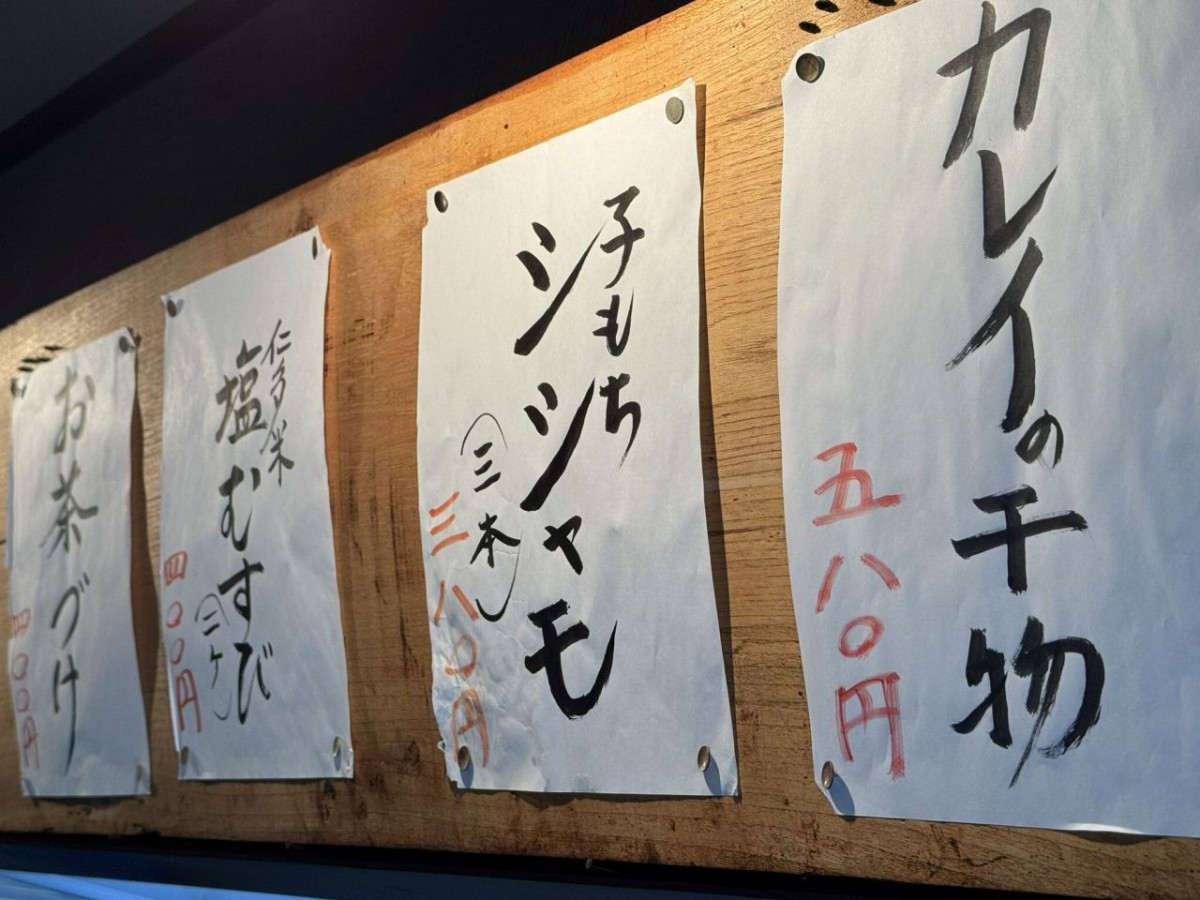 カレイの干物
五八〇円
子もち
シシャモ
(三本)
三八〇円
仁多米
塩むすび
(二ケ)
四〇〇円
お茶づけ
四〇〇円